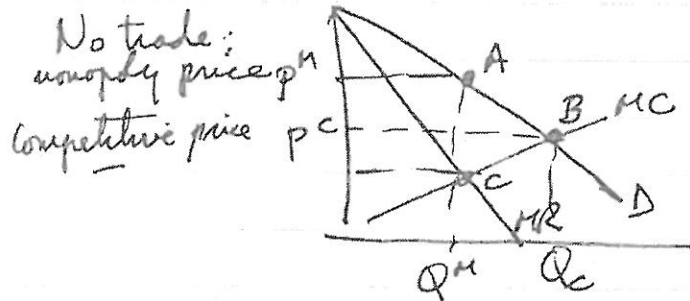 No trade:
monopoly price P^M
A
Competitive price P^C
B
MC
C
D
MR
Q^M
Q_C